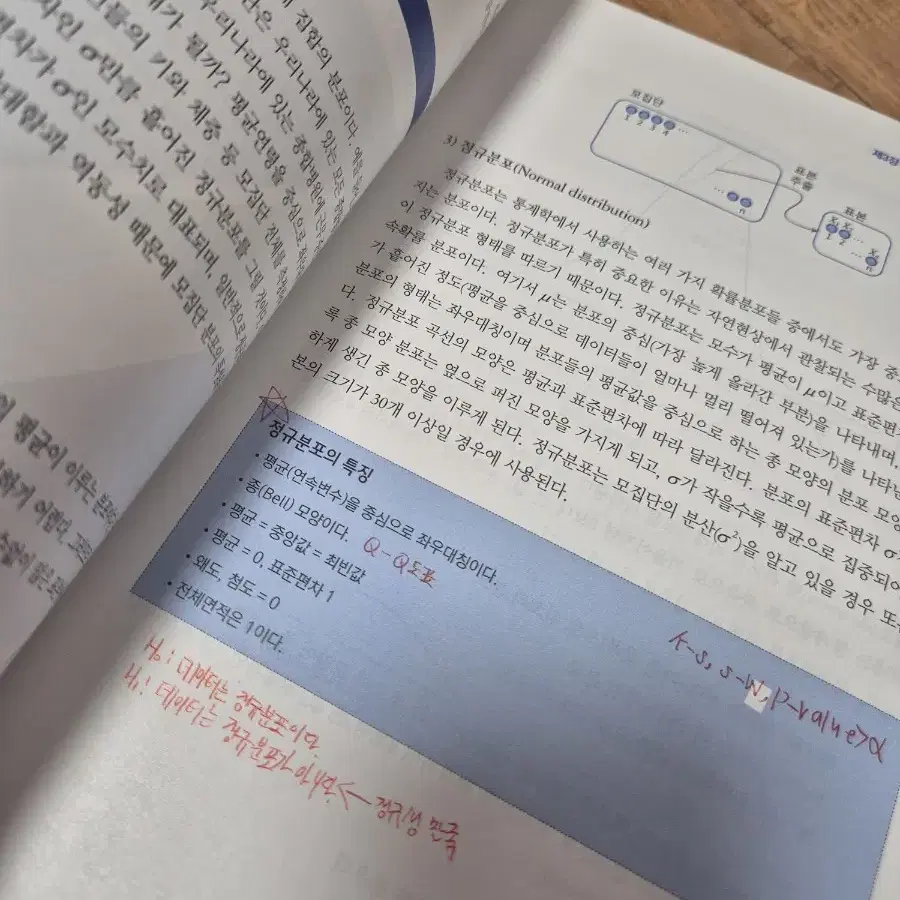 집합의 분포이다.
은 우리나라에 있는
가 될까? 평균연령을 중심으로
들의 키와 체중 등 모집단 전체를
차인 σ만큼 흩어진 정규분포를 그릴
차가 σ인 모수치로 대표되며, 일반적으로
계함과 역동성 때문에 모집단 분포의
의 평균이 이루는
하기 어렵다.
제3장
모집단
1 2 3 4 ...
... n
표본
추출
표본
x₁ x₂ ... xₙ
1 2 ... n
3) 정규분포(Normal distribution)
정규분포는 통계학에서 사용하는 여러 가지 확률분포들 중에서도 가장 중
지는 분포이다. 정규분포가 특히 중요한 이유는 자연현상에서 관찰되는 수많은
이 정규분포 형태를 따르기 때문이다. 정규분포는 모수가 평균이 μ이고 표준편
속확률 분포이다. 여기서 μ는 분포의 중심(가장 높게 올라간 부분)을 나타내며,
가 흩어진 정도(평균을 중심으로 데이터들이 얼마나 멀리 떨어져 있는가)를 나타낸
분포의 형태는 좌우대칭이며 분포들의 평균값을 중심으로 하는 종 모양의 분포 모양
다. 정규분포 곡선의 모양은 평균과 표준편차에 따라 달라진다. 분포의 표준편차 σ
록 종 모양 분포는 옆으로 퍼진 모양을 가지게 되고, σ가 작을수록 평균으로 집중되어
하게 생긴 종 모양을 이루게 된다. 정규분포는 모집단의 분산(σ²)을 알고 있을 경우 또
분의 크기가 30개 이상일 경우에 사용된다.
정규분포의 특징
• 평균(연속변수)을 중심으로 좌우대칭이다.
• 종(Bell) 모양이다. Q-Q도표
• 평균 = 중앙값 = 최빈값
• 평균 = 0, 표준편차 1
• 왜도, 첨도 = 0
• 전체면적은 1이다.
K-S, S-W, P-value>α
H₀: 데이터는 정규분포이다.
H₁: 데이터는 정규분포가 아니다. ← 정규성 만족